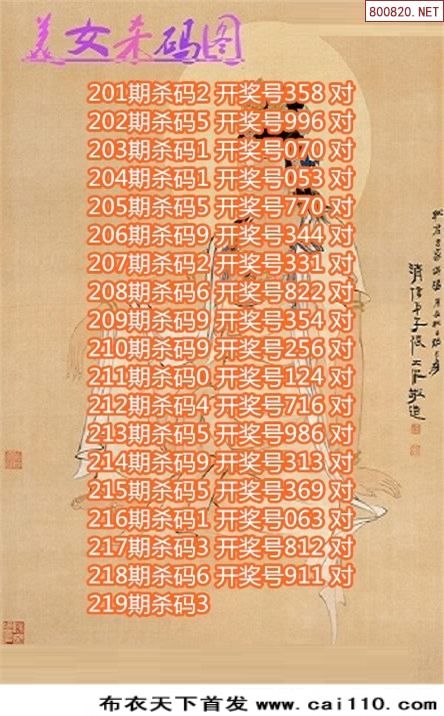 800820.NET
美女杀码图
201期杀码2 开奖号358 对
202期杀码5 开奖号996 对
203期杀码1 开奖号070 对
204期杀码1 开奖号053 对
205期杀码5 开奖号770 对
206期杀码9 开奖号344 对
207期杀码2 开奖号331 对
208期杀码6 开奖号822 对
209期杀码9 开奖号354 对
210期杀码9 开奖号256 对
211期杀码0 开奖号124 对
212期杀码4 开奖号716 对
213期杀码5 开奖号986 对
214期杀码9 开奖号313 对
215期杀码5 开奖号369 对
216期杀码1 开奖号063 对
217期杀码3 开奖号812 对
218期杀码6 开奖号911 对
219期杀码3
布衣天下首发 www.cai110.com